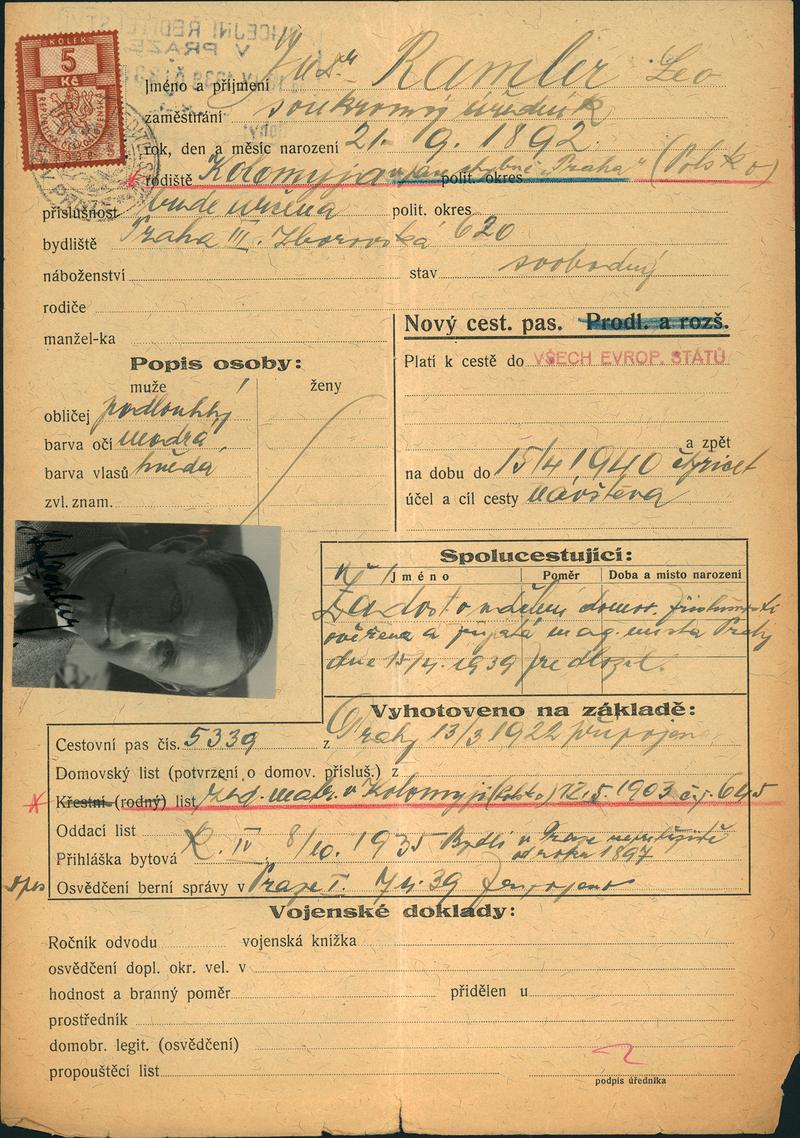 KOLEK
5
Kč
REPUBLIKA ČESKOSLOVENSKÁ
1938
Jméno a příjmení JUDr Ramler Leo
zaměstnání soukromý úředník
rok, den a měsíc narození 21. 9. 1892.
rodiště Kolomyja polit. okres „Praha" (Polsko)
příslušnost bude určena polit. okres
bydliště Praha III. Zborovská 620
náboženství stav svobodný
rodiče
manžel-ka
Nový cest. pas. Prodl. a rozš.
Platí k cestě do VŠECH EVROP. STÁTŮ
a zpět
na dobu do 15/4 1940 čtyřicet
účel a cíl cesty návštěva
Popis osoby:
muže ženy
obličej podlouhlý
barva očí modrá
barva vlasů hnědá
zvl. znam.
Spolucestující:
Jméno Poměr Doba a místo narození
Žádost o udělení domov. příslušnosti
ověřena a přijatá mag. města Prahy
dne 15/4. 1939 předložil.
Vyhotoveno na základě:
Cestovní pas čís. 5339 z Prahy 13/3 1922 připojen
Domovský list (potvrzení o domov. přísluš.) z
Křestní (rodný) list žid. matr. v Kolomyji (Polsko) 12.5.1903 č.j. 645
Oddací list
Přihláška bytová R. IV 8/10. 1935 Bydlí v Praze nepřetržitě
od roku 1897
Osvědčení berní správy v Praze I. 7/4.39 připojeno
Vojenské doklady:
Ročník odvodu vojenská knížka
osvědčení dopl. okr. vel. v
hodnost a branný poměr přidělen u
prostředník
domobr. legit. (osvědčení)
propouštěcí list
podpis úředníka